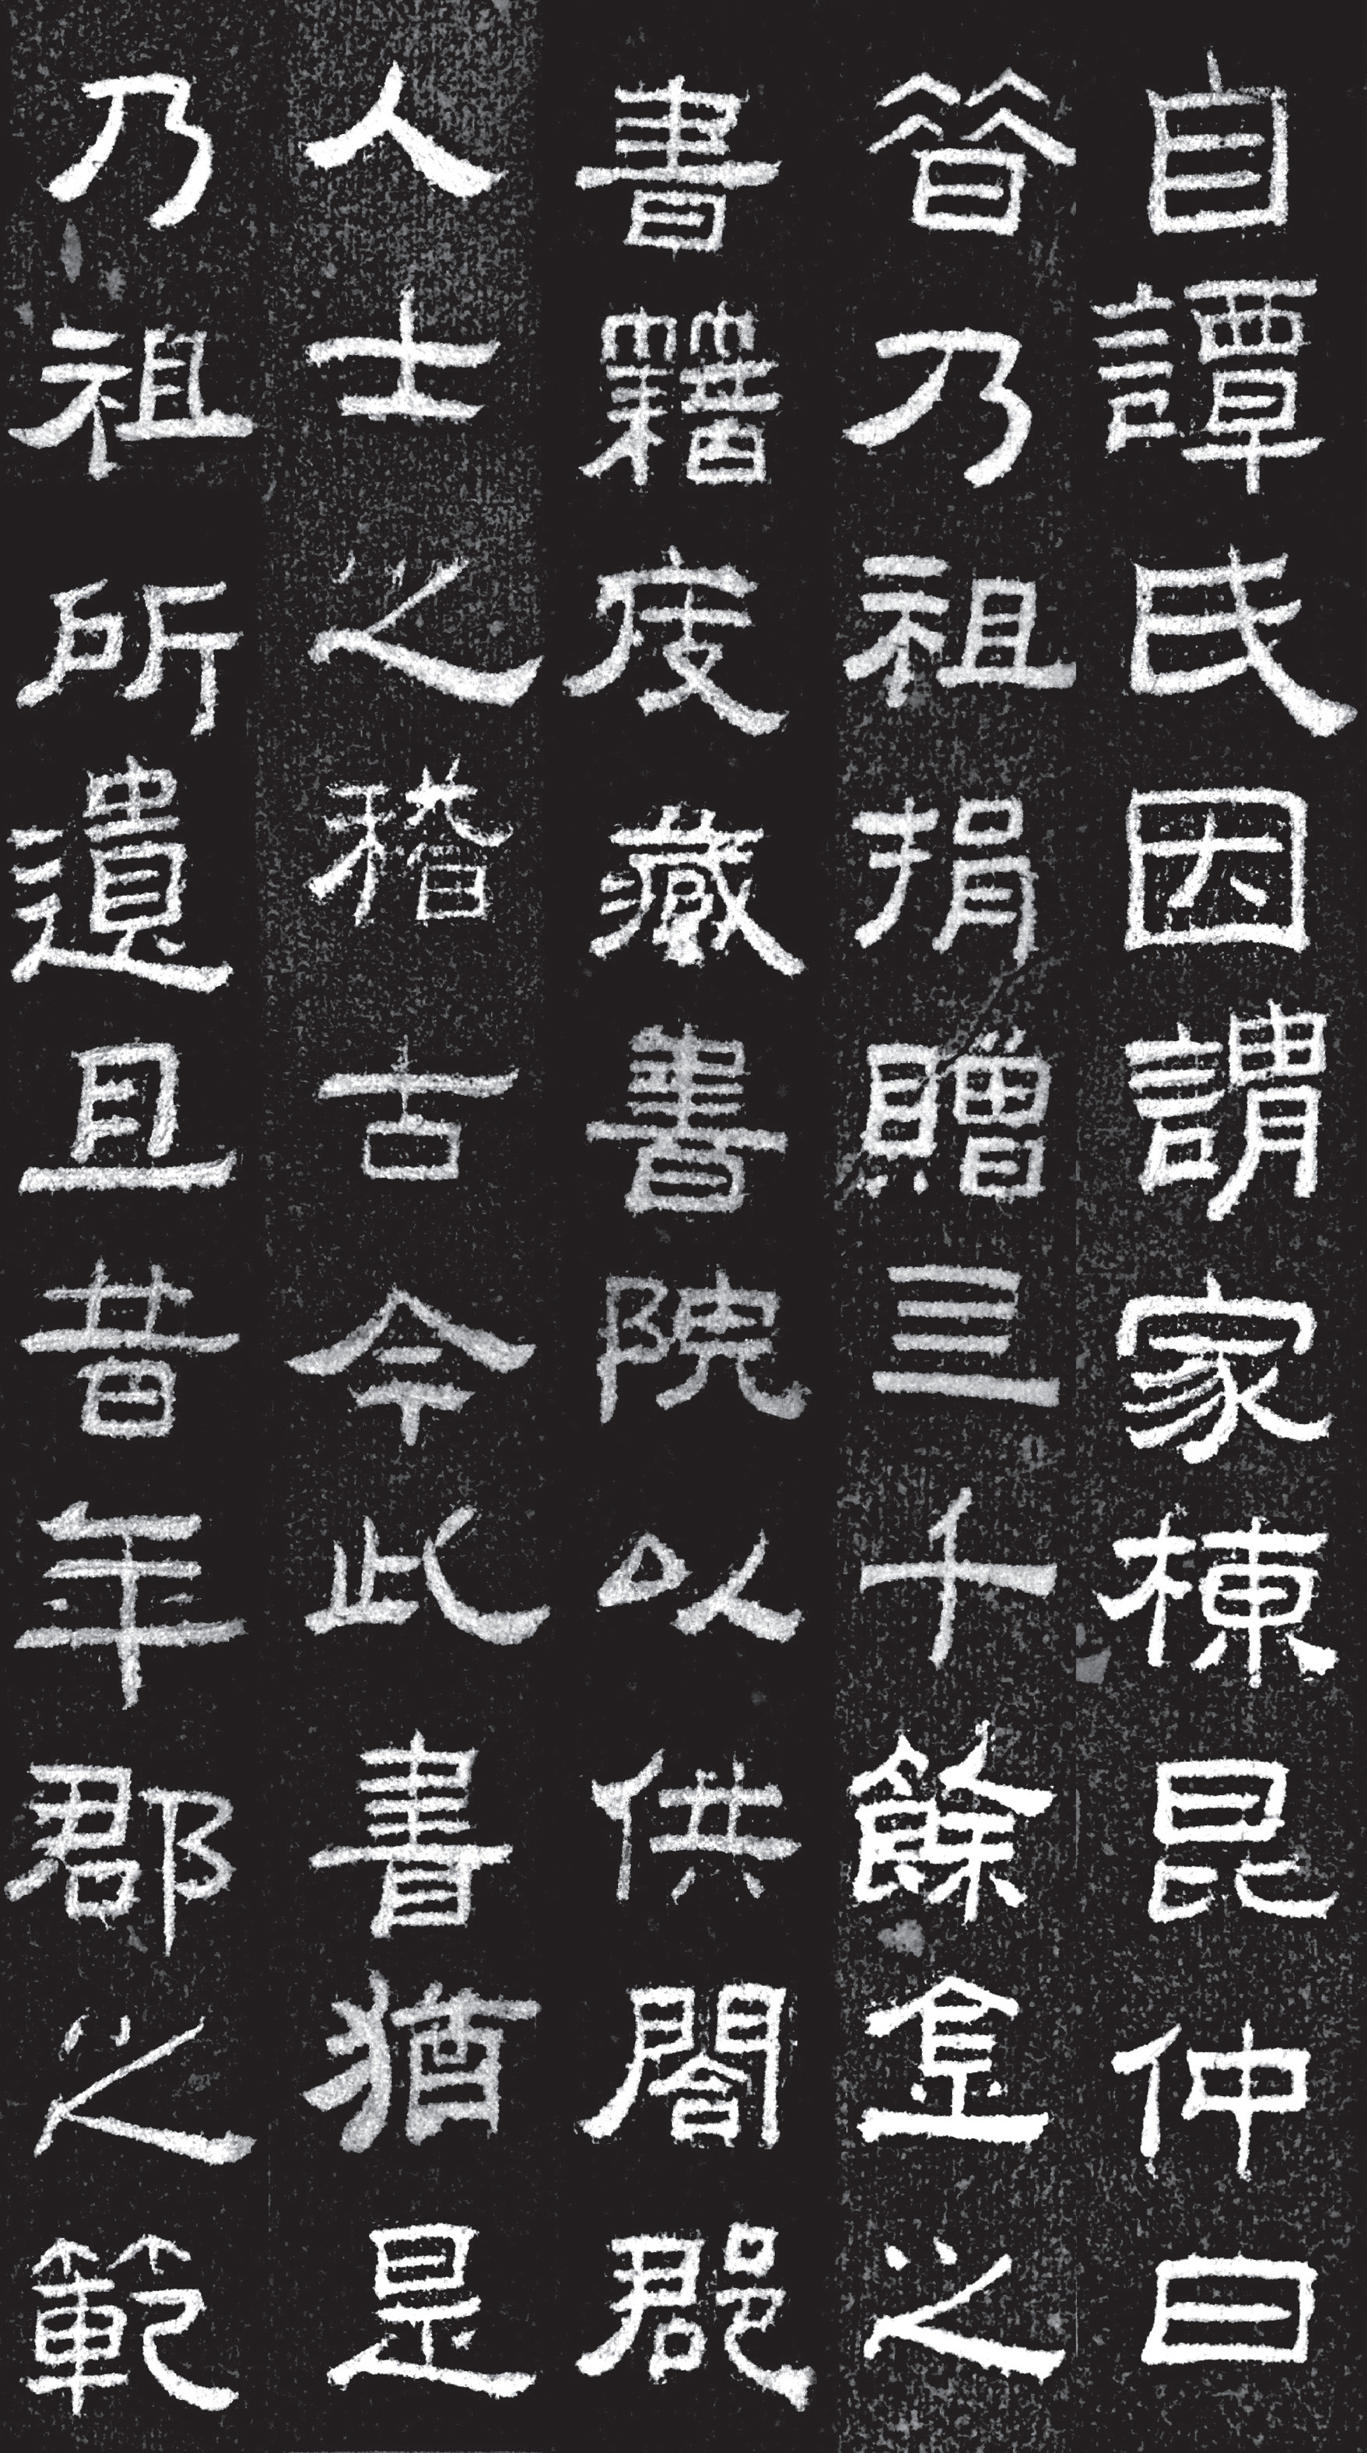 自譚氏因謂家棟昆仲曰
㫺乃祖捐贈亖千餘金之
書籍庋藏書院以供閤郡
人士之稽古今此書猶是
乃祖所遺且昔年郡之範